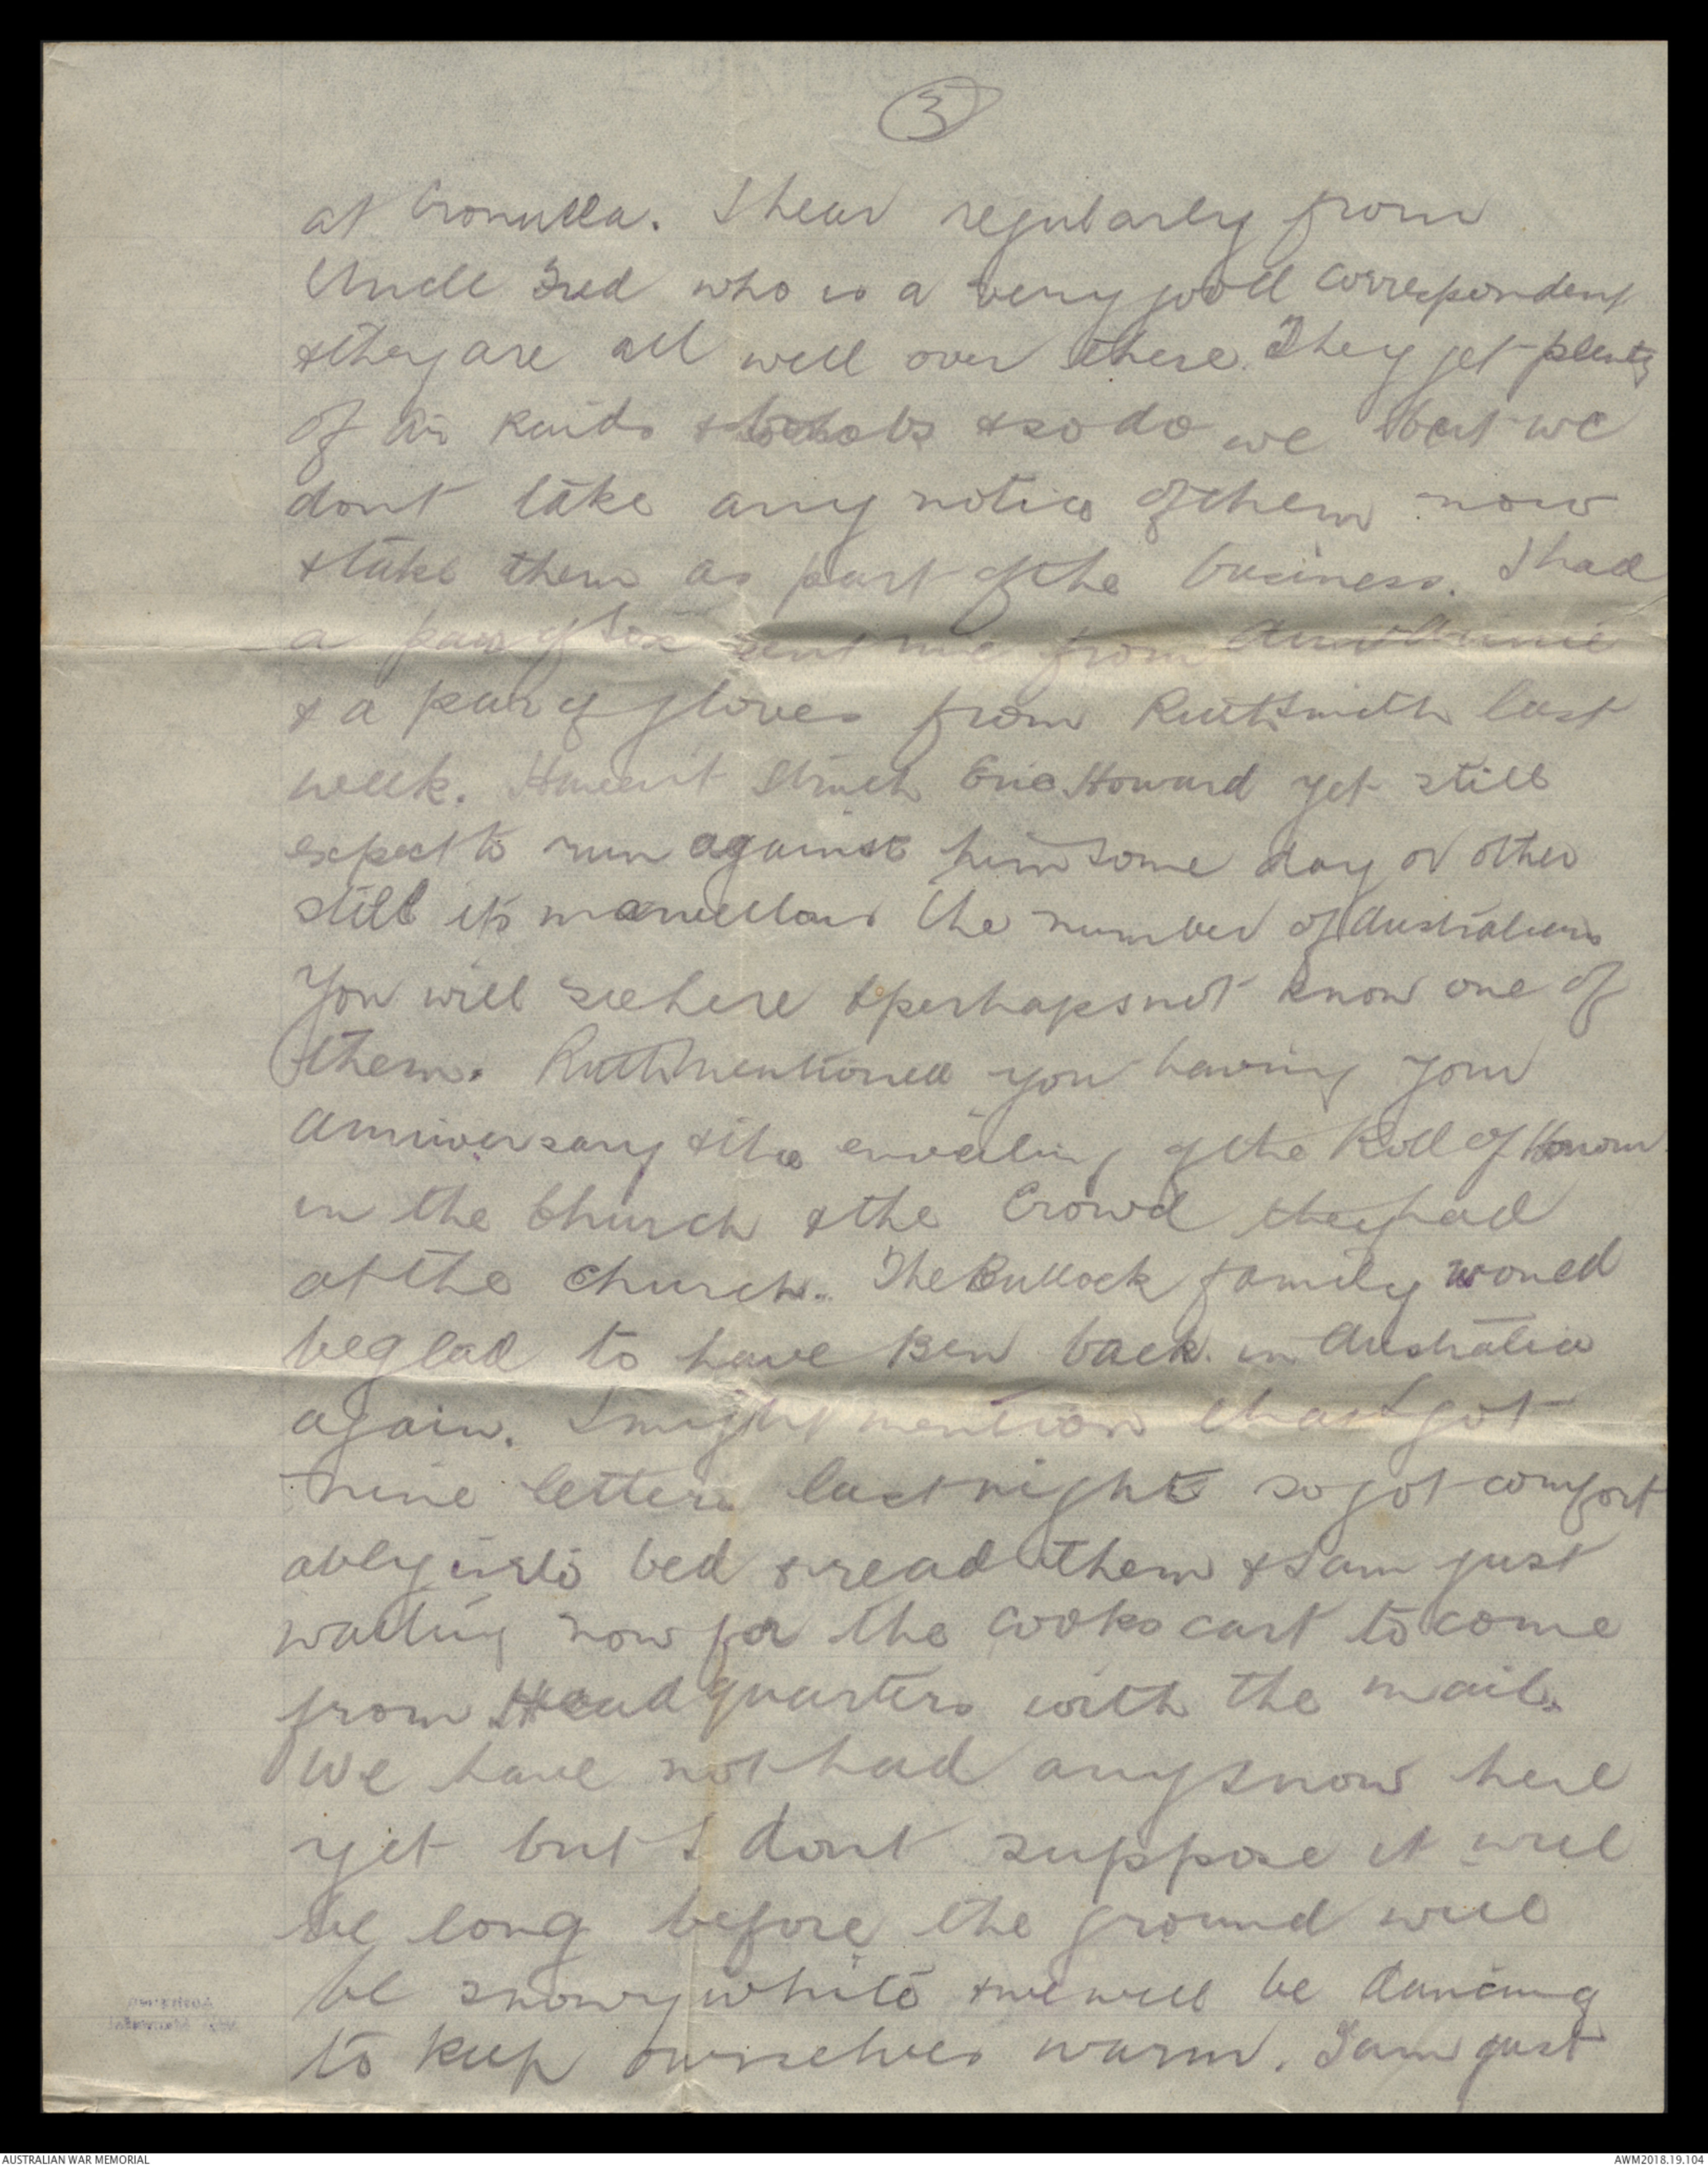 3
at Cronulla. I hear regularly from
Uncle Fred who is a very good correspondent
& they are all well over there. They get plenty
of Air Raids & bombs & so do we but we
dont take any notice of them now
& take them as part of the business. I had
a pair of sox sent me from Aunt Annie
& a pair of gloves from Ruth Smith last
week. Haven't struck Eric Howard yet still
expect to run against him some day or other
still its marvellous the number of Australians
You will see here & perhaps not know one of
them. Ruth mentioned you having your
anniversary & the unveiling of the Roll of Honour
in the Church & the Crowd they had
at the church. The Bullock family would
be glad to have Ben back in Australia
again. I might mention that I got
nine letters last night so got comfort
ably into bed & read them & I am just
waiting now for the cooks cart to come
from Headquarters with the mail.
We have not had any snow here
yet but I dont suppose it will
be long before the ground will
be snowy white & we will be dancing
to keep ourselves warm. I am just
AUSTRALIAN WAR MEMORIAL
AWM2018.19.104